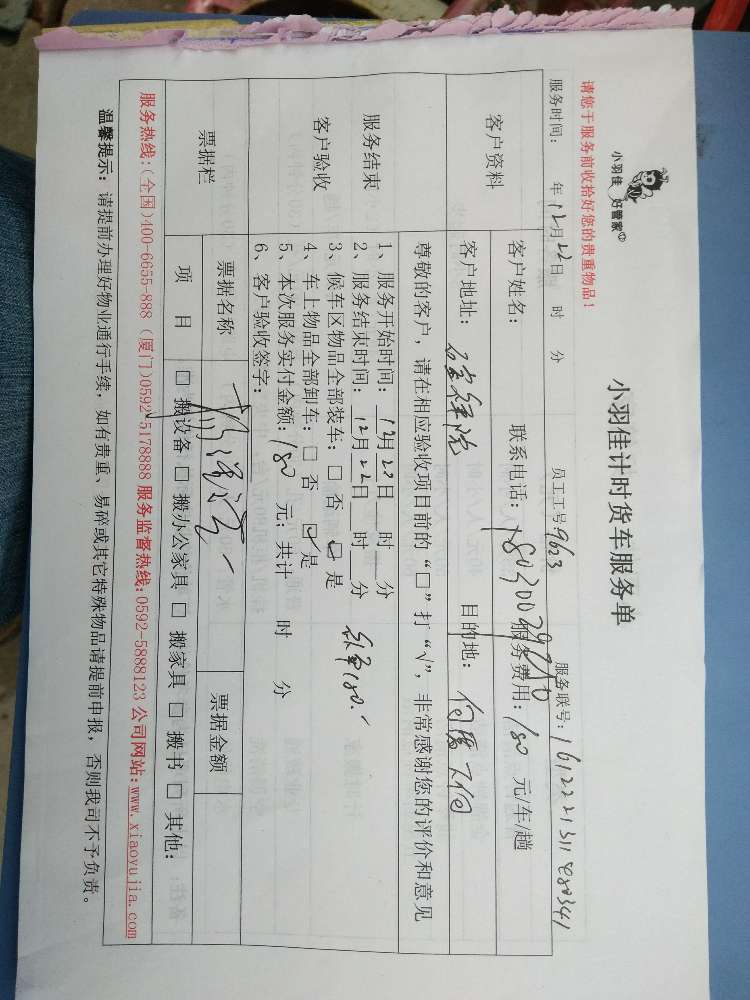 小羽佳 好管家
请您于服务前收拾好您的贵重物品!
小羽佳计时货车服务单
服务时间: 年12月22日 时 分 员工工号9623 服务联号:
客户资料
客户姓名: 联系电话: 服务费用:180 元/车/趟
客户地址: 目的地:
尊敬的客户,请在相应验收项目前的“□”打“√”,非常感谢您的评价和意见
服务结束
客户验收
1、服务开始时间:12月22日 时 分
2、服务结束时间:12月22日 时 分
3、候车区物品全部装车:□ 否 ☑ 是
4、车上物品全部卸车:□ 否 ☑ 是
5、本次服务实付金额:180 元;共计 时 分
6、客户验收签字:
票据栏
票据名称 票据金额
项 目 □ 搬设备 □ 搬办公家具 □ 搬家具 □ 搬书 □ 其他:
服务热线:(全国)400-6655-888 (厦门)0592-5178888 服务监督热线:0592-5888123 公司网站:www.xiaoyujia.com
温馨提示:请提前办理好物业通行手续,如有贵重、易碎或其它特殊物品请提前申报,否则我司不予负责。